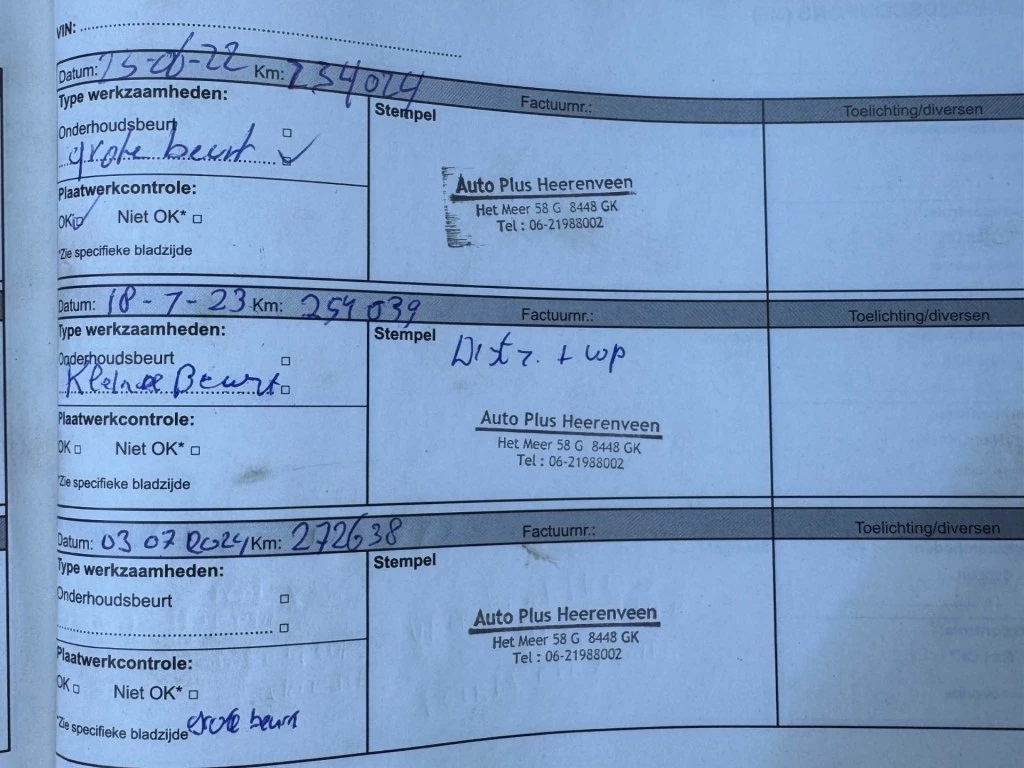 VIN:
Datum: 23-06-22 Km: 234024 Factuurnr.: Toelichting/diversen
Type werkzaamheden: Stempel
Onderhoudsbeurt
grote beurt
Plaatwerkcontrole:
OK Niet OK*
*Zie specifieke bladzijde
Auto Plus Heerenveen
Het Meer 58 G 8448 GK
Tel : 06-21988002
Datum: 18-7-23 Km: 254039 Factuurnr.: Toelichting/diversen
Type werkzaamheden: Stempel
Onderhoudsbeurt
Kleine Beurt
Plaatwerkcontrole:
OK Niet OK*
*Zie specifieke bladzijde
Distr. + wp
Auto Plus Heerenveen
Het Meer 58 G 8448 GK
Tel : 06-21988002
Datum: 03 07 2024 Km: 272638 Factuurnr.: Toelichting/diversen
Type werkzaamheden: Stempel
Onderhoudsbeurt
Plaatwerkcontrole:
OK Niet OK*
*Zie specifieke bladzijde grote beurt
Auto Plus Heerenveen
Het Meer 58 G 8448 GK
Tel : 06-21988002